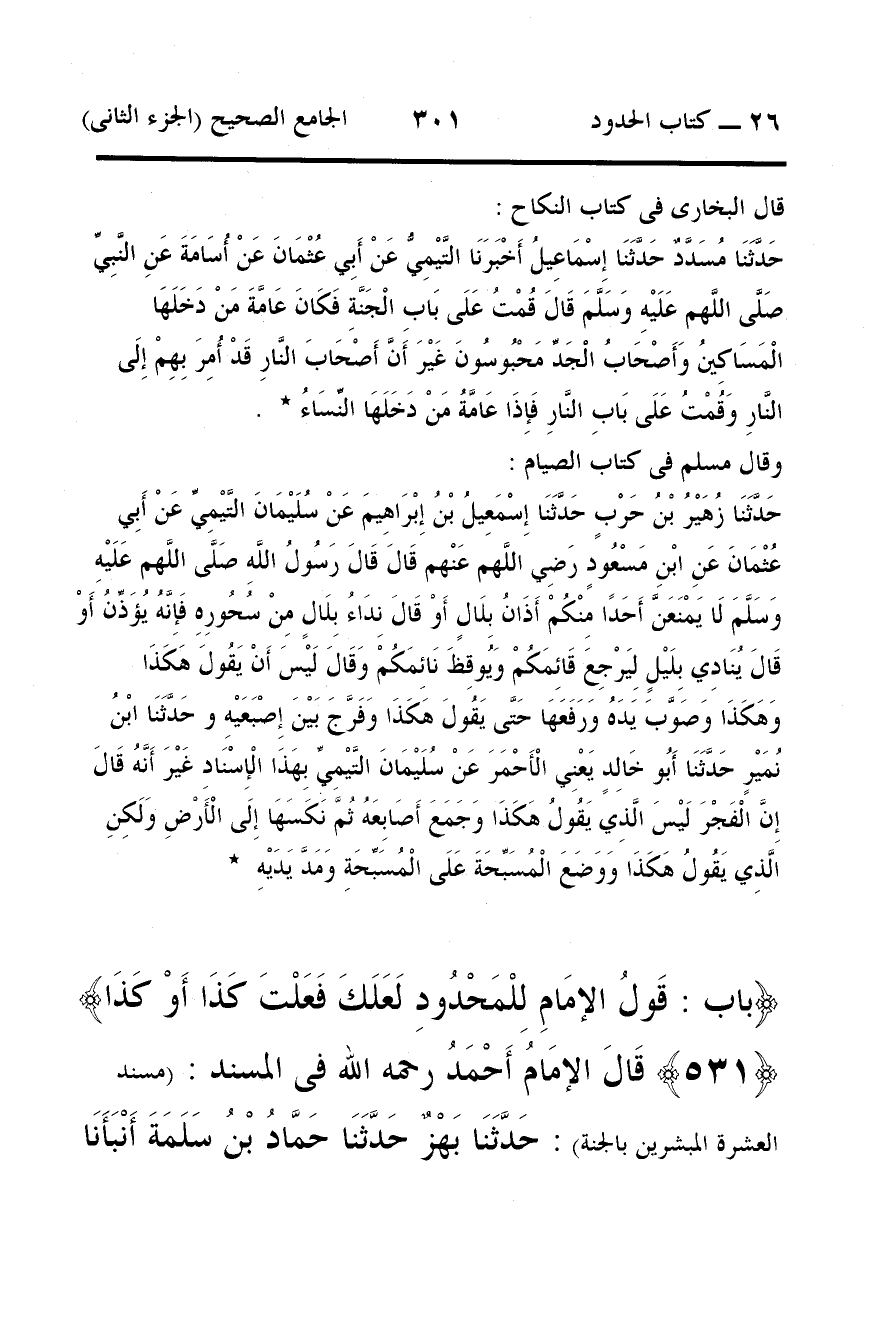 ٢٦ ــ كتاب الحدود ٣٠١ الجامع الصحيح (الجزء الثانى)
قال البخارى فى كتاب النكاح :
حَدَّثَنَا مُسَدَّدٌ حَدَّثَنَا إِسْمَاعِيلُ أَخْبَرَنَا التَّيْمِيُّ عَنْ أَبِي عُثْمَانَ عَنْ أُسَامَةَ عَنِ النَّبِيِّ
صَلَّى اللهم عَلَيْهِ وَسَلَّمَ قَالَ قُمْتُ عَلَى بَابِ الْجَنَّةِ فَكَانَ عَامَّةَ مَنْ دَخَلَهَا
الْمَسَاكِينُ وَأَصْحَابُ الْجَدِّ مَحْبُوسُونَ غَيْرَ أَنَّ أَصْحَابَ النَّارِ قَدْ أُمِرَ بِهِمْ إِلَى
النَّارِ وَقُمْتُ عَلَى بَابِ النَّارِ فَإِذَا عَامَّةُ مَنْ دَخَلَهَا النِّسَاءُ * .
وقال مسلم فى كتاب الصيام :
حَدَّثَنَا زُهَيْرُ بْنُ حَرْبٍ حَدَّثَنَا إِسْمَعِيلُ بْنُ إِبْرَاهِيمَ عَنْ سُلَيْمَانَ التَّيْمِيِّ عَنْ أَبِي
عُثْمَانَ عَنِ ابْنِ مَسْعُودٍ رَضِي اللهم عَنْهم قَالَ قَالَ رَسُولُ اللَّهِ صَلَّى اللهم عَلَيْهِ
وَسَلَّمَ لَا يَمْنَعَنَّ أَحَدًا مِنْكُمْ أَذَانُ بِلَالٍ أَوْ قَالَ نِدَاءُ بِلَالٍ مِنْ سُحُورِهِ فَإِنَّهُ يُؤَذِّنُ أَوْ
قَالَ يُنَادِي بِلَيْلٍ لِيَرْجِعَ قَائِمَكُمْ وَيُوقِظَ نَائِمَكُمْ وَقَالَ لَيْسَ أَنْ يَقُولَ هَكَذَا
وَهَكَذَا وَصَوَّبَ يَدَهُ وَرَفَعَهَا حَتَّى يَقُولَ هَكَذَا وَفَرَّجَ بَيْنَ إِصْبَعَيْهِ و حَدَّثَنَا ابْنُ
نُمَيْرٍ حَدَّثَنَا أَبُو خَالِدٍ يَعْنِي الْأَحْمَرَ عَنْ سُلَيْمَانَ التَّيْمِيِّ بِهَذَا الْإِسْنَادِ غَيْرَ أَنَّهُ قَالَ
إِنَّ الْفَجْرَ لَيْسَ الَّذِي يَقُولُ هَكَذَا وَجَمَعَ أَصَابِعَهُ ثُمَّ نَكَسَهَا إِلَى الْأَرْضِ وَلَكِنِ
الَّذِي يَقُولُ هَكَذَا وَوَضَعَ الْمُسَبِّحَةَ عَلَى الْمُسَبِّحَةِ وَمَدَّ يَدَيْهِ *
﴿باب : قَولُ الإمَامِ لِلْمَحْدُودِ لَعَلَكَ فَعَلْتَ كَذَا أَوْ كَذَا﴾
﴿٥٣١﴾ قَالَ الإمَامُ أَحْمَدُ رحمه الله فى المسند : (مسند
العشرة المبشرين بالجنة) : حَدَّثَنَا بَهْزٌ حَدَّثَنَا حَمَّادُ بْنُ سَلَمَةَ أَنْبَأَنَا